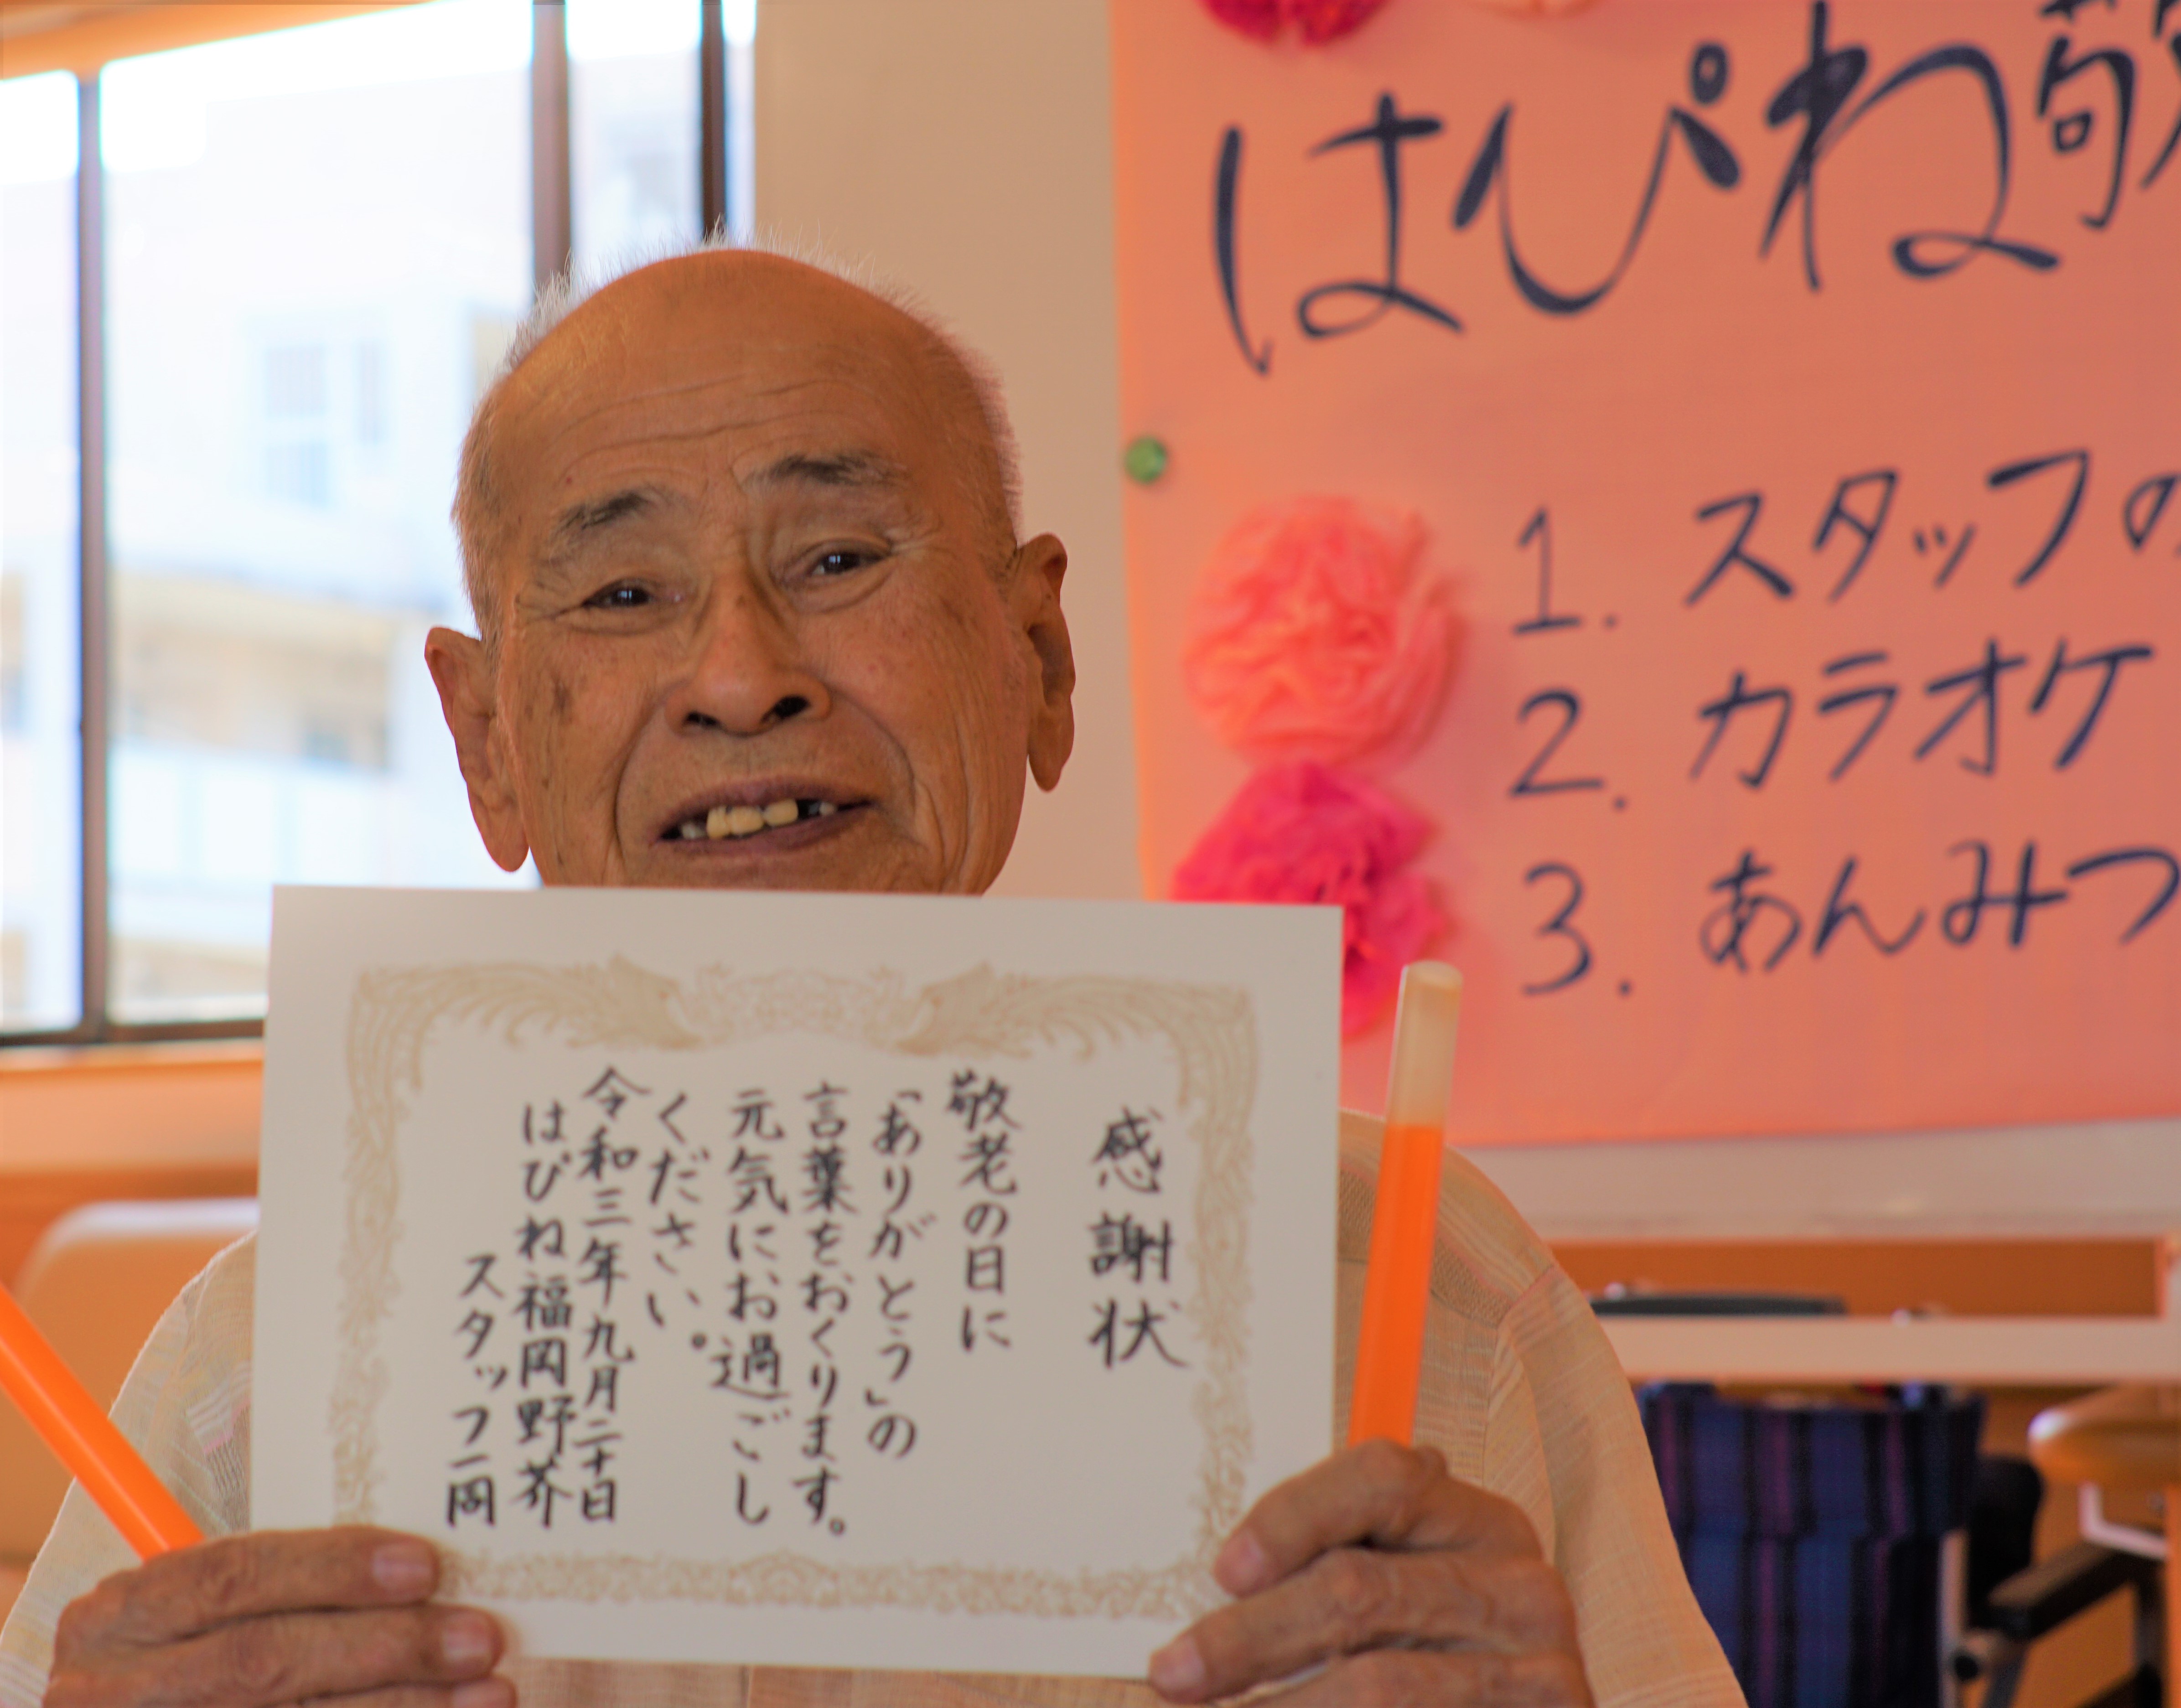 はぴね敬
1. スタッフの
2. カラオケ
3. あんみつ
感謝状
敬老の日に
「ありがとう」の
言葉をおくります。
元気にお過ごし
ください。
令和三年九月二十日
はぴね福岡野芥
スタッフ一同